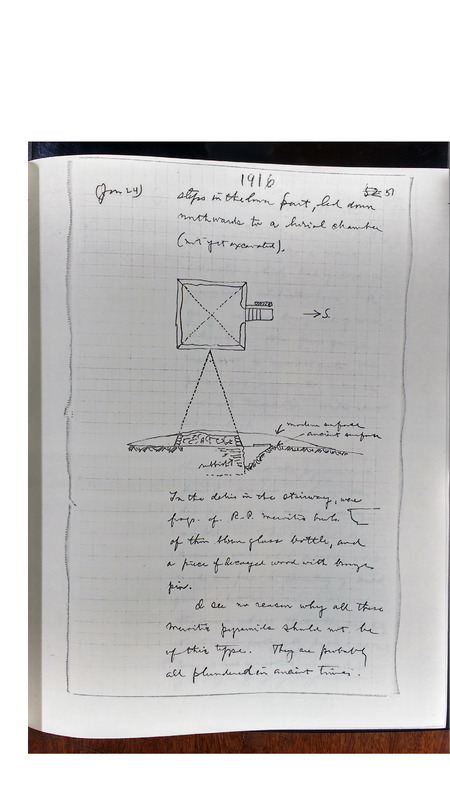 1916
(Jan 24)
52 51
steps in the lower part, led down
northwards to a burial chamber
(not yet excavated).
→ S.
modern surface
ancient surface
rubbish
In the debris in the stairway, were
frags. of R.P. Meroitic bowls
of thin blown glass bottle, and
a piece of decayed wood with bronze
pin.
I see no reason why all these
Meroitic pyramids should not be
of this type. They are probably
all plundered in ancient times.